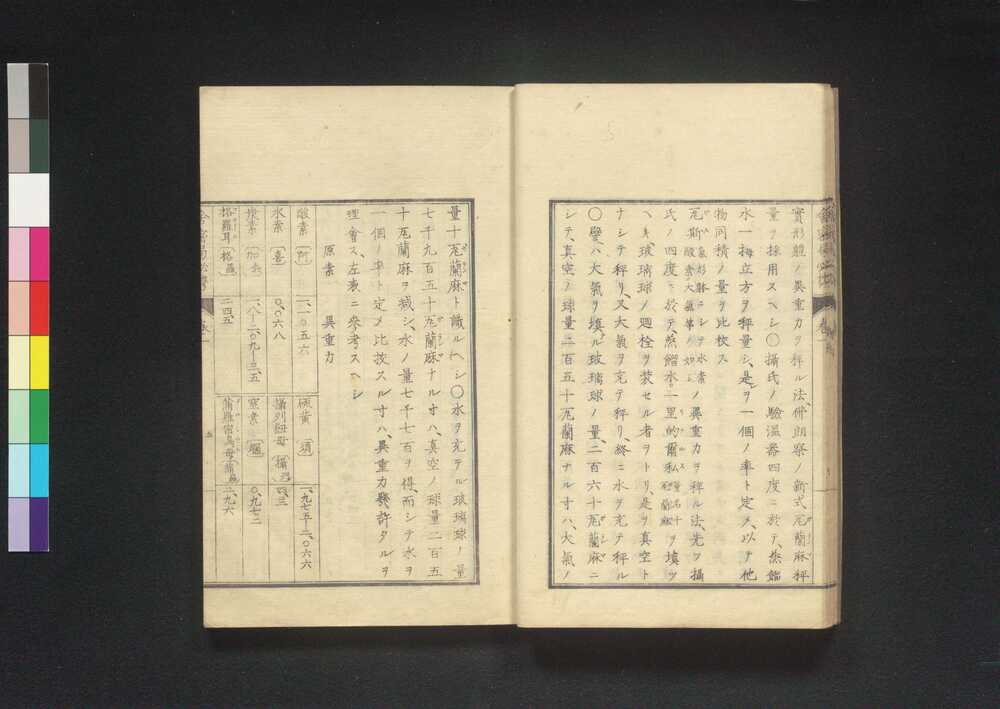 實形軆ノ異重力ヲ秤ル法、佛朗察ノ新式瓦蘭麻秤
量ヲ採用スヘシ〇攝氏ノ驗温器四度ニ於テ、蒸餾
水一拇立方ヲ秤量シ、是ヲ一個ノ率ト定メ、以テ他
物同積ノ量ヲ比校ス
瓦斯ノ異重力ヲ秤ル法、先ツ攝
氏ノ四度ニ於テ、蒸餾水一里的爾ヲ填ツ
ヘキ玻璃球ノ廻栓ヲ裝セル者ヲトリ、是ヲ真空ト
ナシテ秤リ、又大氣ヲ充テ秤リ、終ニ水ヲ充テ秤ル
〇譬ハ大氣ヲ填ル玻璃球ノ量、二百六十瓦蘭麻ニ
シテ、真空ノ球量二百五十瓦蘭麻ナル寸ハ、大氣ノ
量十瓦蘭麻ト識ルヘシ〇水ヲ充テル玻璃球ノ量
七千九百五十瓦蘭麻ナル寸ハ、真空ノ球量二百五
十瓦蘭麻ヲ減シ、水ノ量七千七百ヲ得、而シテ水ヲ
一個ノ率ト定メ比按スル寸ハ、異重力幾許タルヲ
理會ス、左表ニ参考スヘシ
原素 異重力
酸素 一、一〇五六
硫黄 一、九七五―二、〇六六
水素 〇、〇六八
四、三
炭素 一、八―二、〇九―三、五
窒素 〇、九七二
格羅耳 二四五、
二、九六